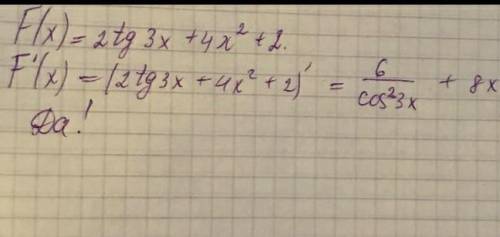 F(x) = 2tg 3x + 4x² + 2.
F'(x) = (2tg 3x + 4x² + 2)' = 6/cos²3x + 8x
Да!